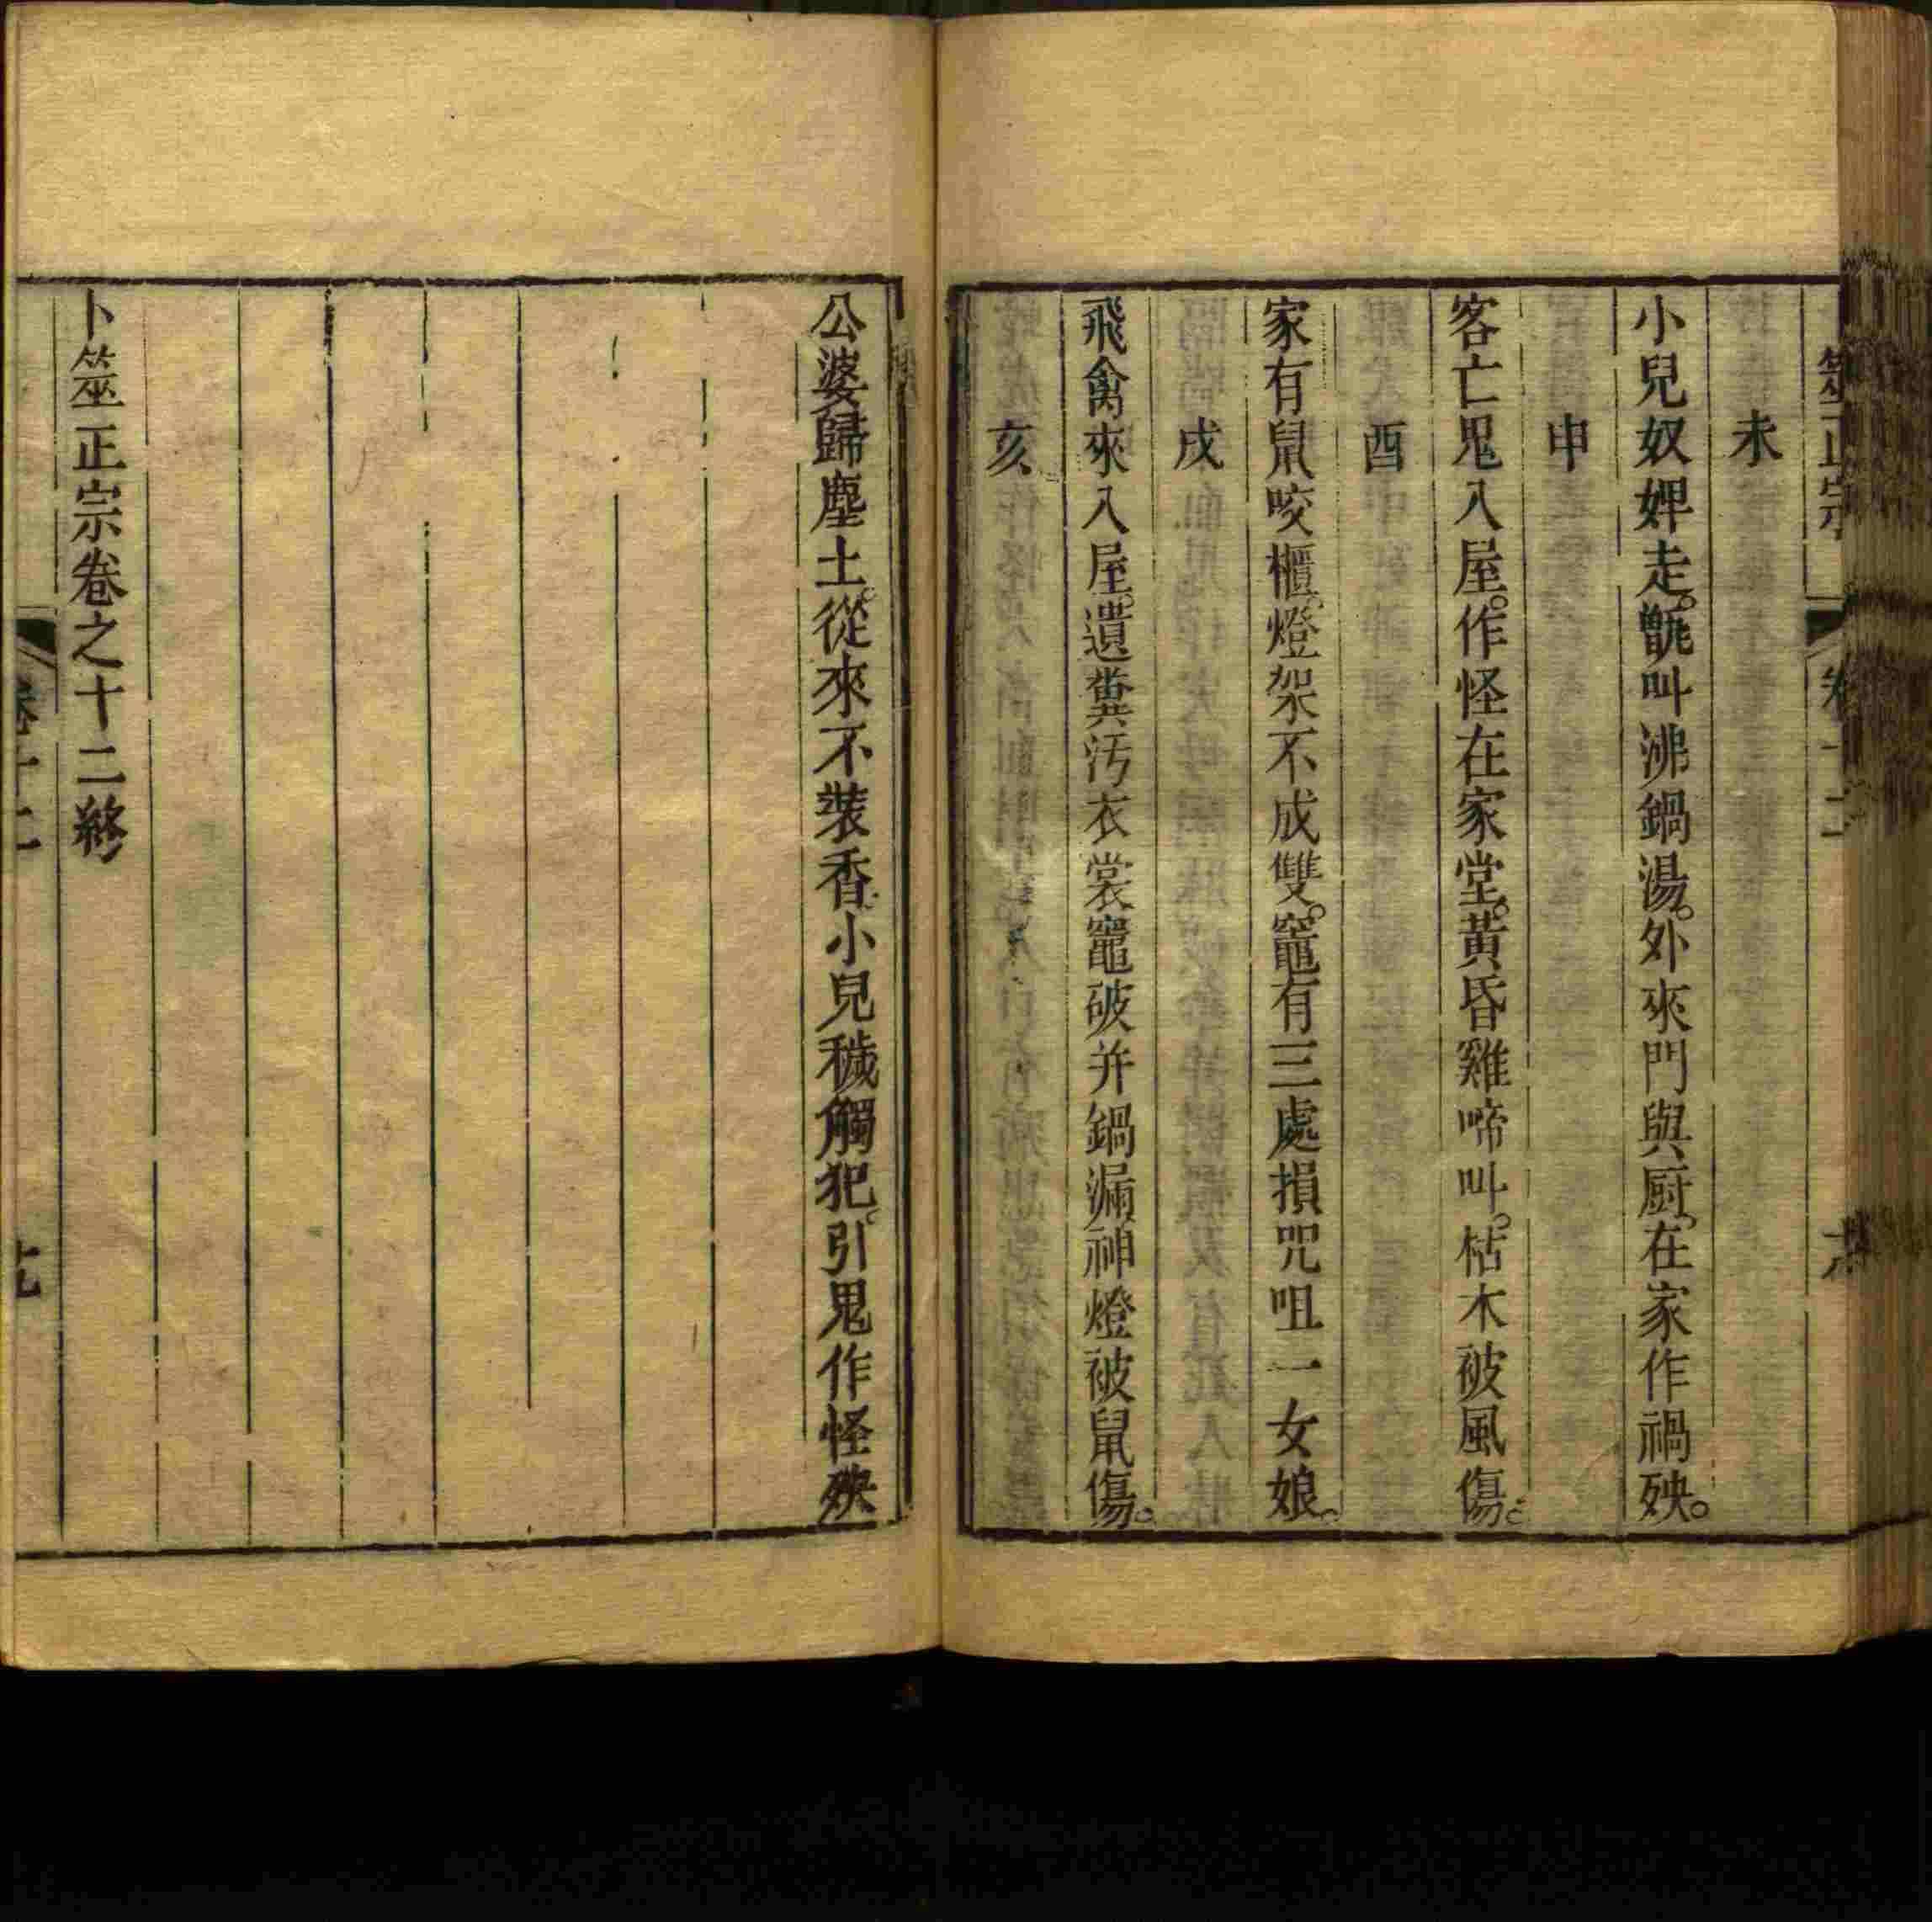 筮正宗 卷十二
未
小兒奴婢走。甑叫沸鍋湯。外來門與厨。在家作禍殃。
申
客亡鬼入屋。作怪在家堂。黃昏雞啼叫。枯木被風傷。
酉
家有鼠咬櫃。燈架不成雙。竈有三處損咒咀一女娘。
戌
飛禽來入屋。遺糞汚衣裳竈破并鍋漏神燈被鼠傷。
亥
公婆歸塵土。從來不裝香。小兒穢觸犯。引鬼作怪殃
卜筮正宗卷之十二終
卷十二